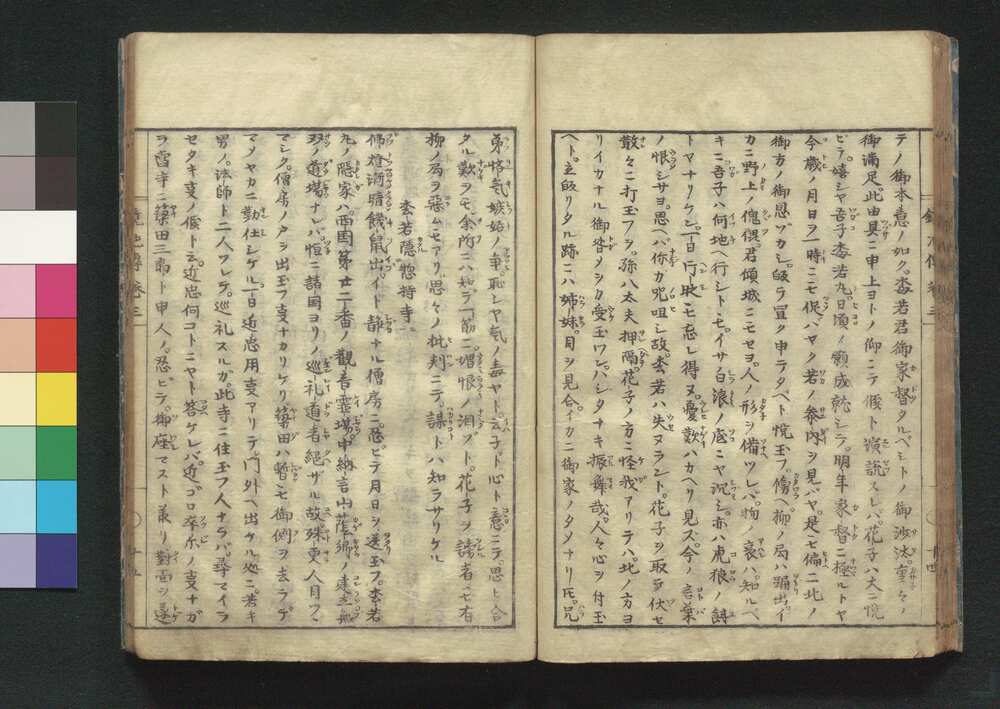 テノ御本意ノ如ク。松若君御家督タルベシトノ御沙汰重々ノ
御満足。此由具ニ申上ヨトノ仰ニテ候ト演説スレバ。花子ハ大ニ悦
ビテ。嬉シヤ吾子松若丸。日頃ノ願成就シテ。明年家督ニ極ルトヤ
今歳ノ月日ヲ一時ニモ促バマク若ノ参内ヲ見バヤ。是モ偏ニ北ノ
御方ノ御恩ゾカシ。皈ラバ宜ク申テタベト悦玉フ。傍ヘ柳ノ局ハ踊出。イ
カニ野上ノ傀儡君傾城ニモセヨ。人ノ形ヲ備ツレバ。物ノ哀ハ知ルベ
キニ吾子ハ何地ヘ行シトモ。イサ白浪ノ底ニヤ沉シ。亦ハ虎狼ノ餌
トマナリケン。一日行映モ忘レ得ヌ。憂歎ハカヘリ見ス。今ノ言葉
ノ恨シサヨ。思ヘバ你カ咒咀シ故。松若ハ失ヌラント。花子ヲ取テ伏セ
散々ニ打玉フヲ。弥八太夫押隔。花子ノ方ニ怪我アリテハ北ノ方ヨ
リイカナル御咎メヲカ受玉ワン。ハシタナキ振舞哉。人々心ヲ付玉
ヘト。立皈リタル跡ニハ姉妹。目ヲ見合。イカニ御家ノタメナリ氏兄
弟悋気嫉妬ノ争恥シヤ気ノ毒ヤト。云子ド心ト意ニテ思ヒ合
タル歎ヲモ。余所ニハ知ラ一筋ニ。増恨ノ泪ゾト。花子ヲ諦者モ有
柳ノ局ヲ悪ムモアリ。思々ノ批判ニテ。謀トハ知ラサリケル
松若隠惣持寺
佛燈消暗餓鼠出。イト静ナル僧房ニ。忍ビテ月日ヲ送玉フ。松若
丸ノ隠家ハ。西国第廿二番ノ観音霊場。中納言山蔭郷ノ建立無
双ノ道場ナレバ。恒ニ諸国ヨリノ巡礼道者絶ザル故。殊更人目ヲ
マシク。僧房ノ戸ヲ出玉フ事ナカリケリ。粟田ハ暫モ御側ヲ去ラデ
マメヤカニ勤仕シケル。一日近忠用事アリテ。門外ヘ出ケル処ニ。若キ
男ノ。法師ト二人ツレテ。巡礼スルガ。此寺ニ住玉フ人ナラバ。尋マイラ
セタキ事ノ候ト云。近忠何コトニヤト答ケレバ。近ゴロ卒尓ノ事ナガ
ラ當寺ニ粟田三郎ト申人ノ忍ビテ。御座マスト承リ対面ヲ遂